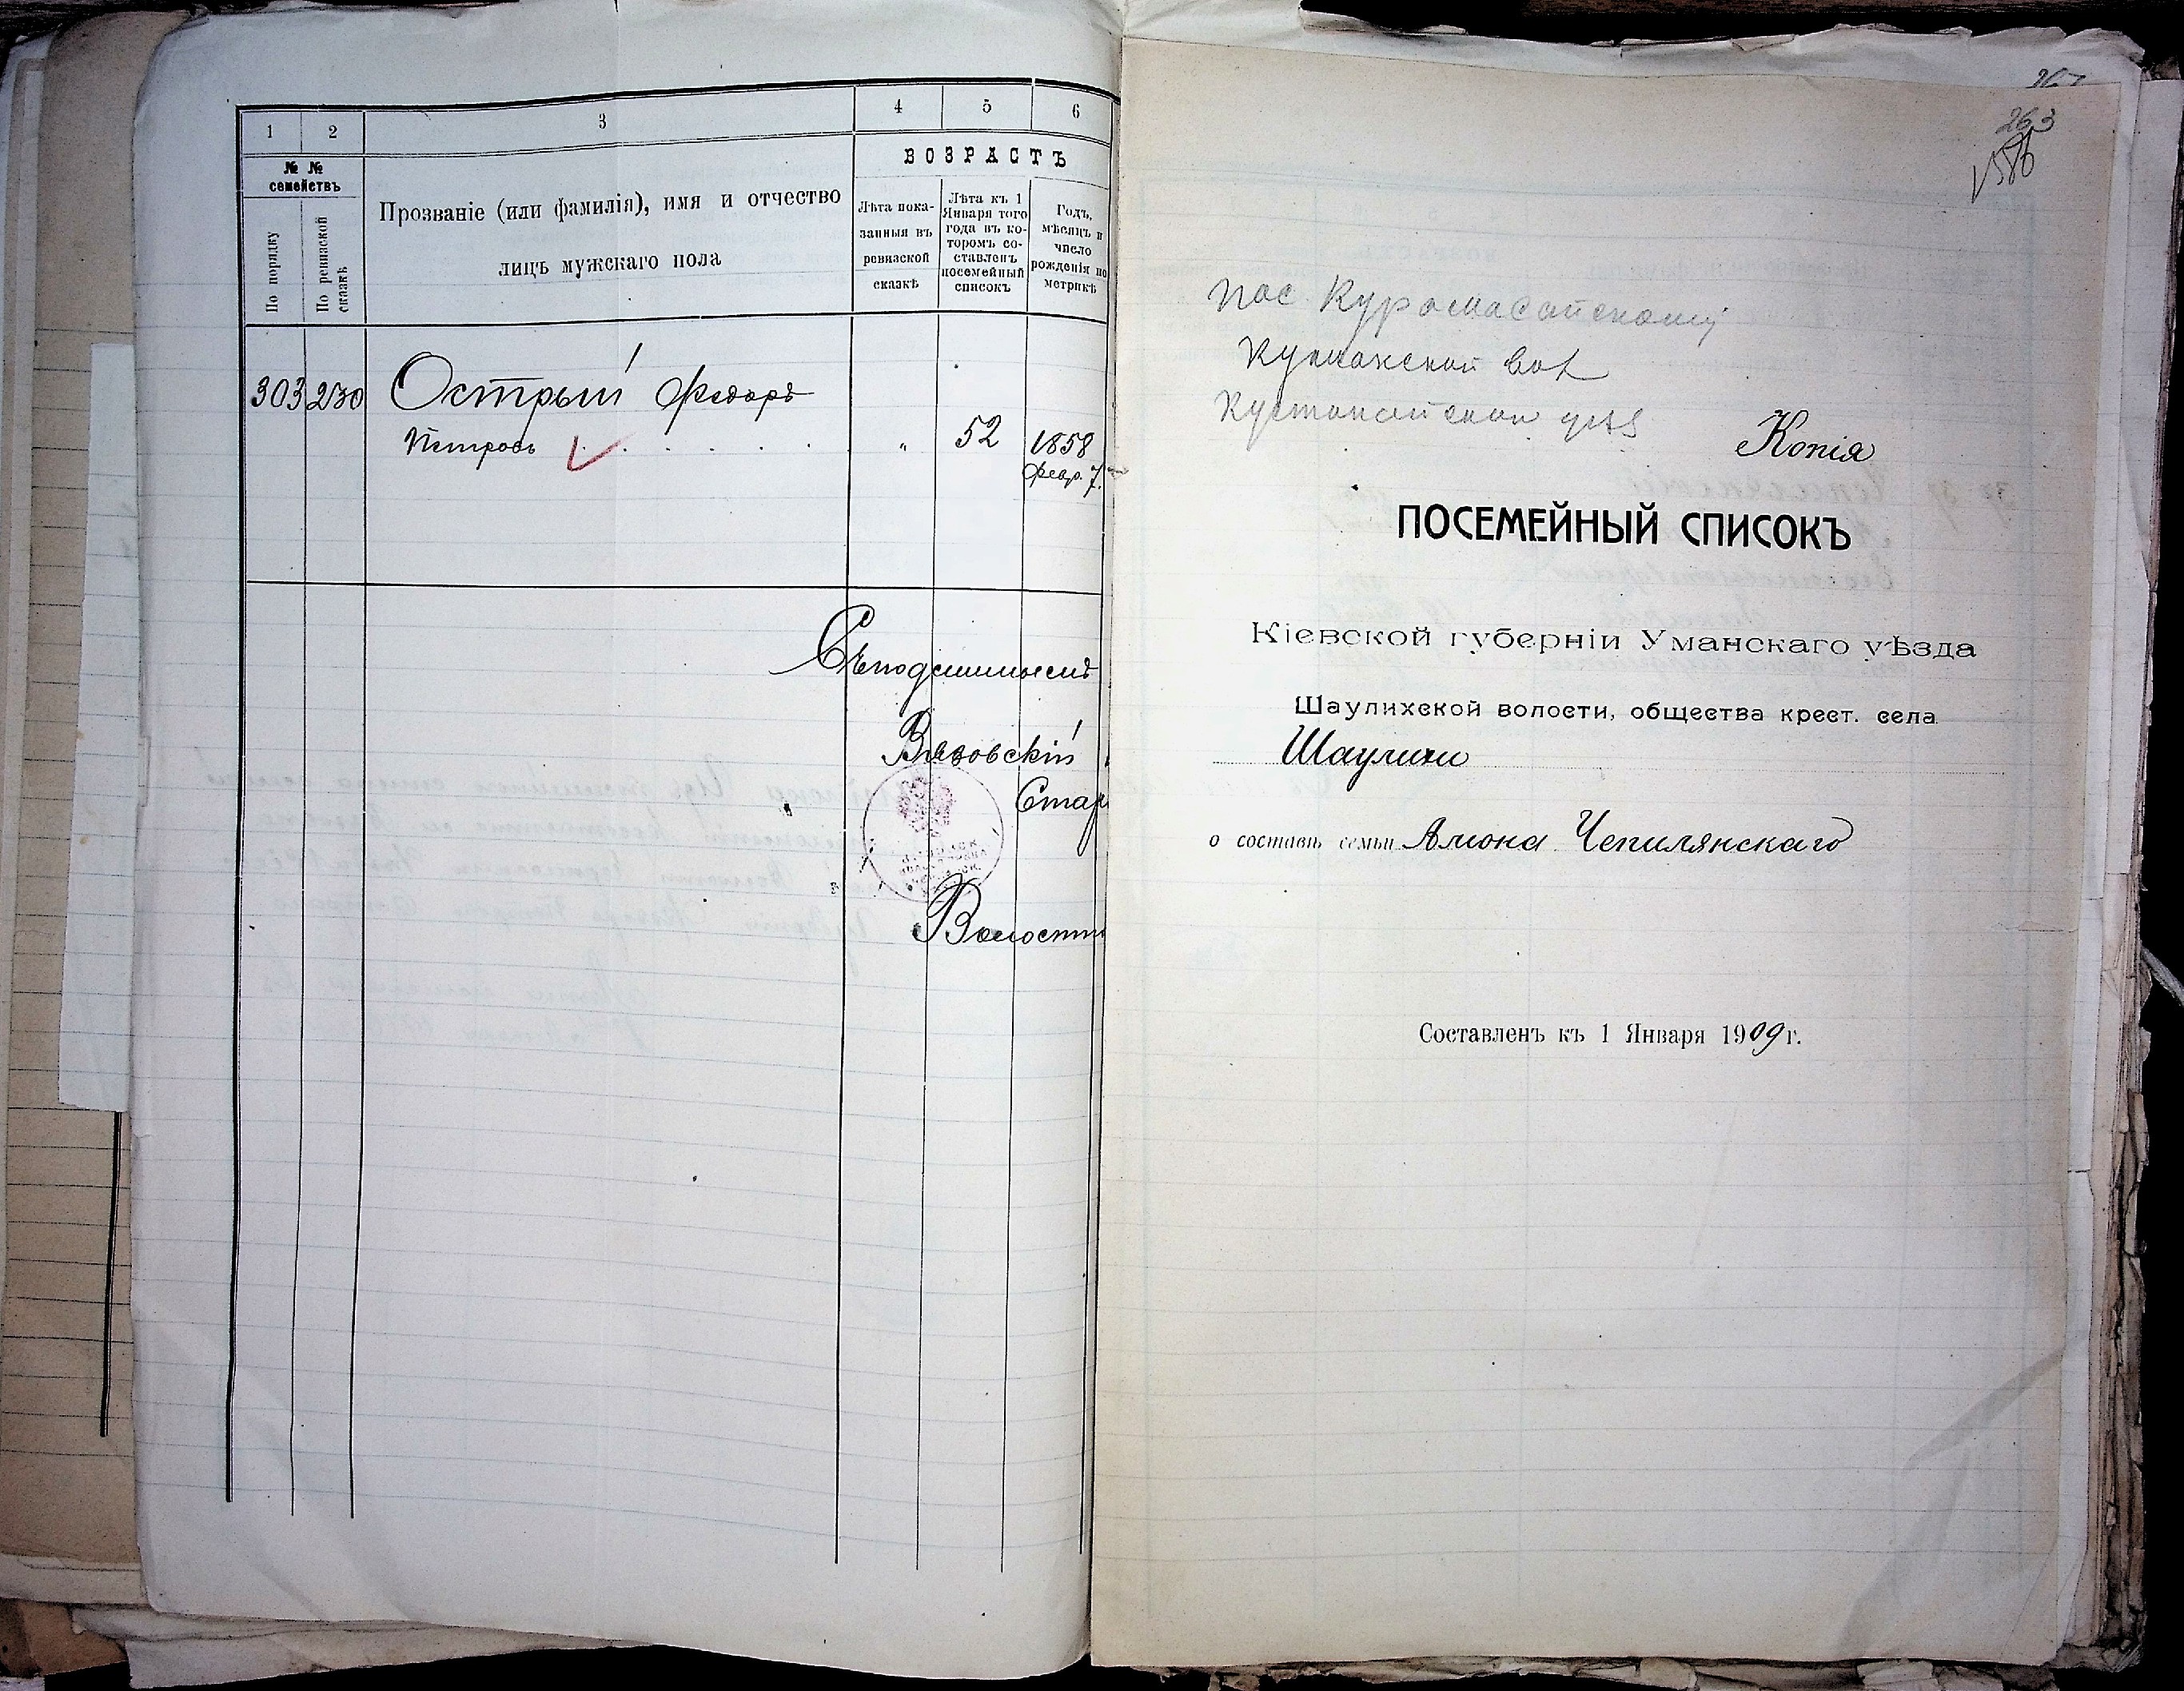 1 2 3 4 5 6
№ № семействъ
По порядку
По ревизской сказкѣ
Прозваніе (или фамилія), имя и отчество
лицъ мужскаго пола
ВОЗРАСТЪ
Лѣта пока-
занныя въ
ревизской
сказкѣ
Лѣта къ 1
Января того
года въ ко-
торомъ со-
ставленъ
посемейный
списокъ
Годъ,
мѣсяцъ и
число
рожденія по
метрикѣ
303 230 Острый Федоръ
Петровъ " 52 1858
Февр. 7.
Вязовскій
Стар
Волостн
263
пос
Кустанайской
Копія
ПОСЕМЕЙНЫЙ СПИСОКЪ
Кіевской губерніи Уманскаго уѣзда
Шаулихской волости, общества крест. села
Шаулихи
о составѣ семьи Чепилянскаго
Составленъ къ 1 Января 1909 г.